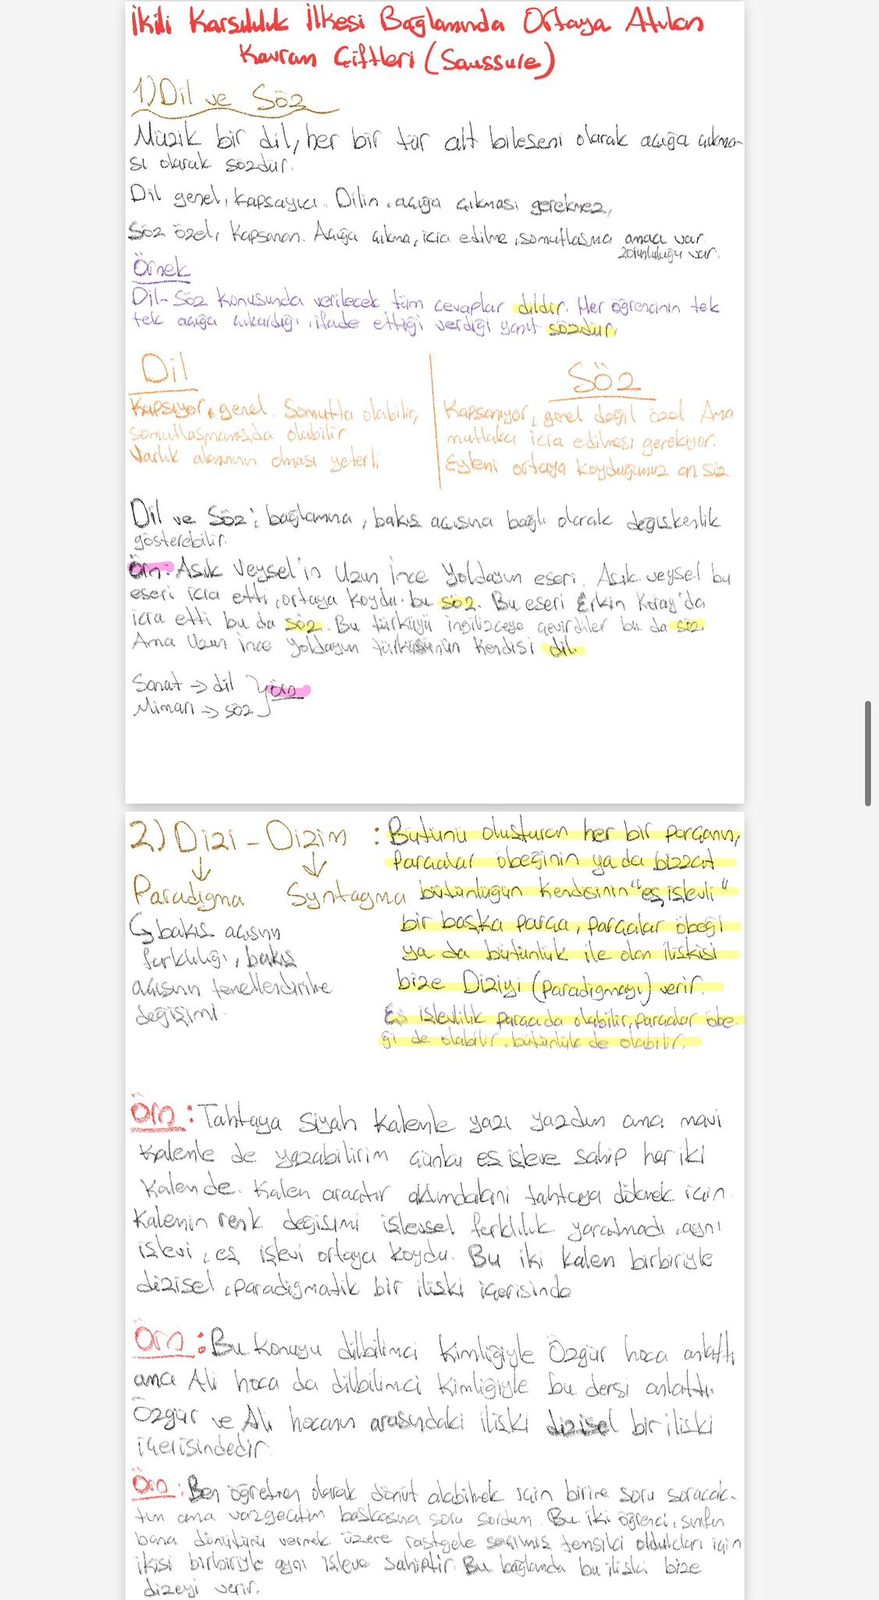 İkili Karşıtlık İlkesi Bağlamında Ortaya Atılan
Kavram Çiftleri (Saussure)
1) Dil ve Söz
Müzik bir dil, her bir tür alt bileşeni olarak açığa çıkma-
sı olarak sözdür.
Dil genel, kapsayıcı. Dilin açığa çıkması gerekmez,
Söz özel, kapsanan. Açığa çıkma, icra edilme, somutlaşma amacı var
zorunluluğu var.
Örnek
Dil-Söz konusunda verilecek tüm cevaplar dildir. Her öğrencinin tek
tek açığa çıkardığı, ifade ettiği verdiği yanıt sözdür.
Dil
Kapsıyor, genel. Somutta olabilir,
somutlaşmamışda olabilir
Varlık alanının olması yeterli
Söz
Kapsanıyor, genel değil özel. Ama
mutlaka icra edilmesi gerekiyor.
Eylemi ortaya koyduğumuz an söz
Dil ve Söz; bağlamına, bakış açısına bağlı olarak değişkenlik
gösterebilir.
Örn: Aşık Veysel'in Uzun İnce Yoldayım eseri. Aşık veysel bu
eseri icra etti, ortaya koydu. bu söz. Bu eseri Erkin Koray'da
icra etti bu da söz. Bu türküyü ingilizceye çevirdiler bu da söz.
Ama Uzun ince yoldayım türküsünün kendisi dil.
Sanat → dil
Mimari → söz
örn
2) Dizi - Dizim
Paradigma Syntagma
bakış açısının
farklılığı, bakış
açısının temellendirilme
değişimi.
: Bütünü oluşturan her bir parçanın,
parçalar öbeğinin ya da bizzat
bütünlüğün kendisinin "eş işlevli"
bir başka parça, parçalar öbeği
ya da bütünlük ile olan ilişkisi
bize Diziyi (paradigmayı) verir.
Eş işlevlilik parçada olabilir, parçalar öbe-
ği de olabilir, bütünlük de olabilir.
Örn: Tahtaya siyah kalemle yazı yazdım ama mavi
kalemle de yazabilirim çünkü eş işleve sahip her iki
kalem de. Kalem araçtır aklımdakini tahtaya dökmek için.
Kalemin renk değişimi işlevsel farklılık yaratmadı, aynı
işlevi, eş işlevi ortaya koydu. Bu iki kalem birbiriyle
dizisel, paradigmatik bir ilişki içerisinde
Örn: Bu konuyu dilbilimci kimliğiyle Özgür hoca anlattı
ama Ali hoca da dilbilimci kimliğiyle bu dersi anlattı.
Özgür ve Ali hocanın arasındaki ilişki dizisel bir ilişki
içerisindedir.
Örn: Ben öğretmen olarak dönüt alabilmek için birine soru soracak-
tım ama vazgeçtim başkasına soru sordum. Bu iki öğrenci, sınıfın
bana dönütünü vermek üzere rastgele seçilmiş temsilci oldukları için
ikisi birbiriyle aynı işleve sahiptir. Bu bağlamda bu ilişki bize
dizeyi verir.